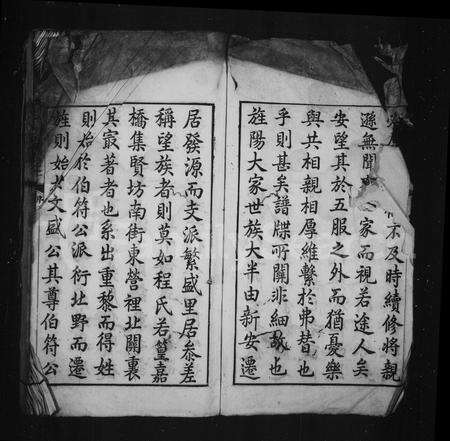 不及時續修將親
遜無聞 家而視若途人矣
安望其於五服之外而猶憂樂
與共相親相厚維繫於弗替也
乎則甚矣譜牒所關非細故也
旌陽大家世族大半由新安遷
居發源而支派繁盛里居參差
稱望族者則莫如程氏若篁嘉
橋集賢坊南街東營裡北關裏
其㝡著者也系出重黎而得姓
則始於伯符公派衍北野而遷
旌則始於文盛公其尊伯符公